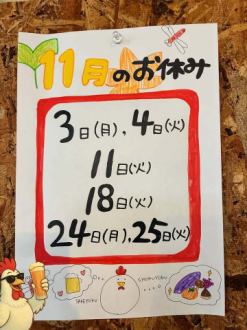 11月のお休み
3日(月),4日(火)
11日(火)
18日(火)
24日(月),25日(火)